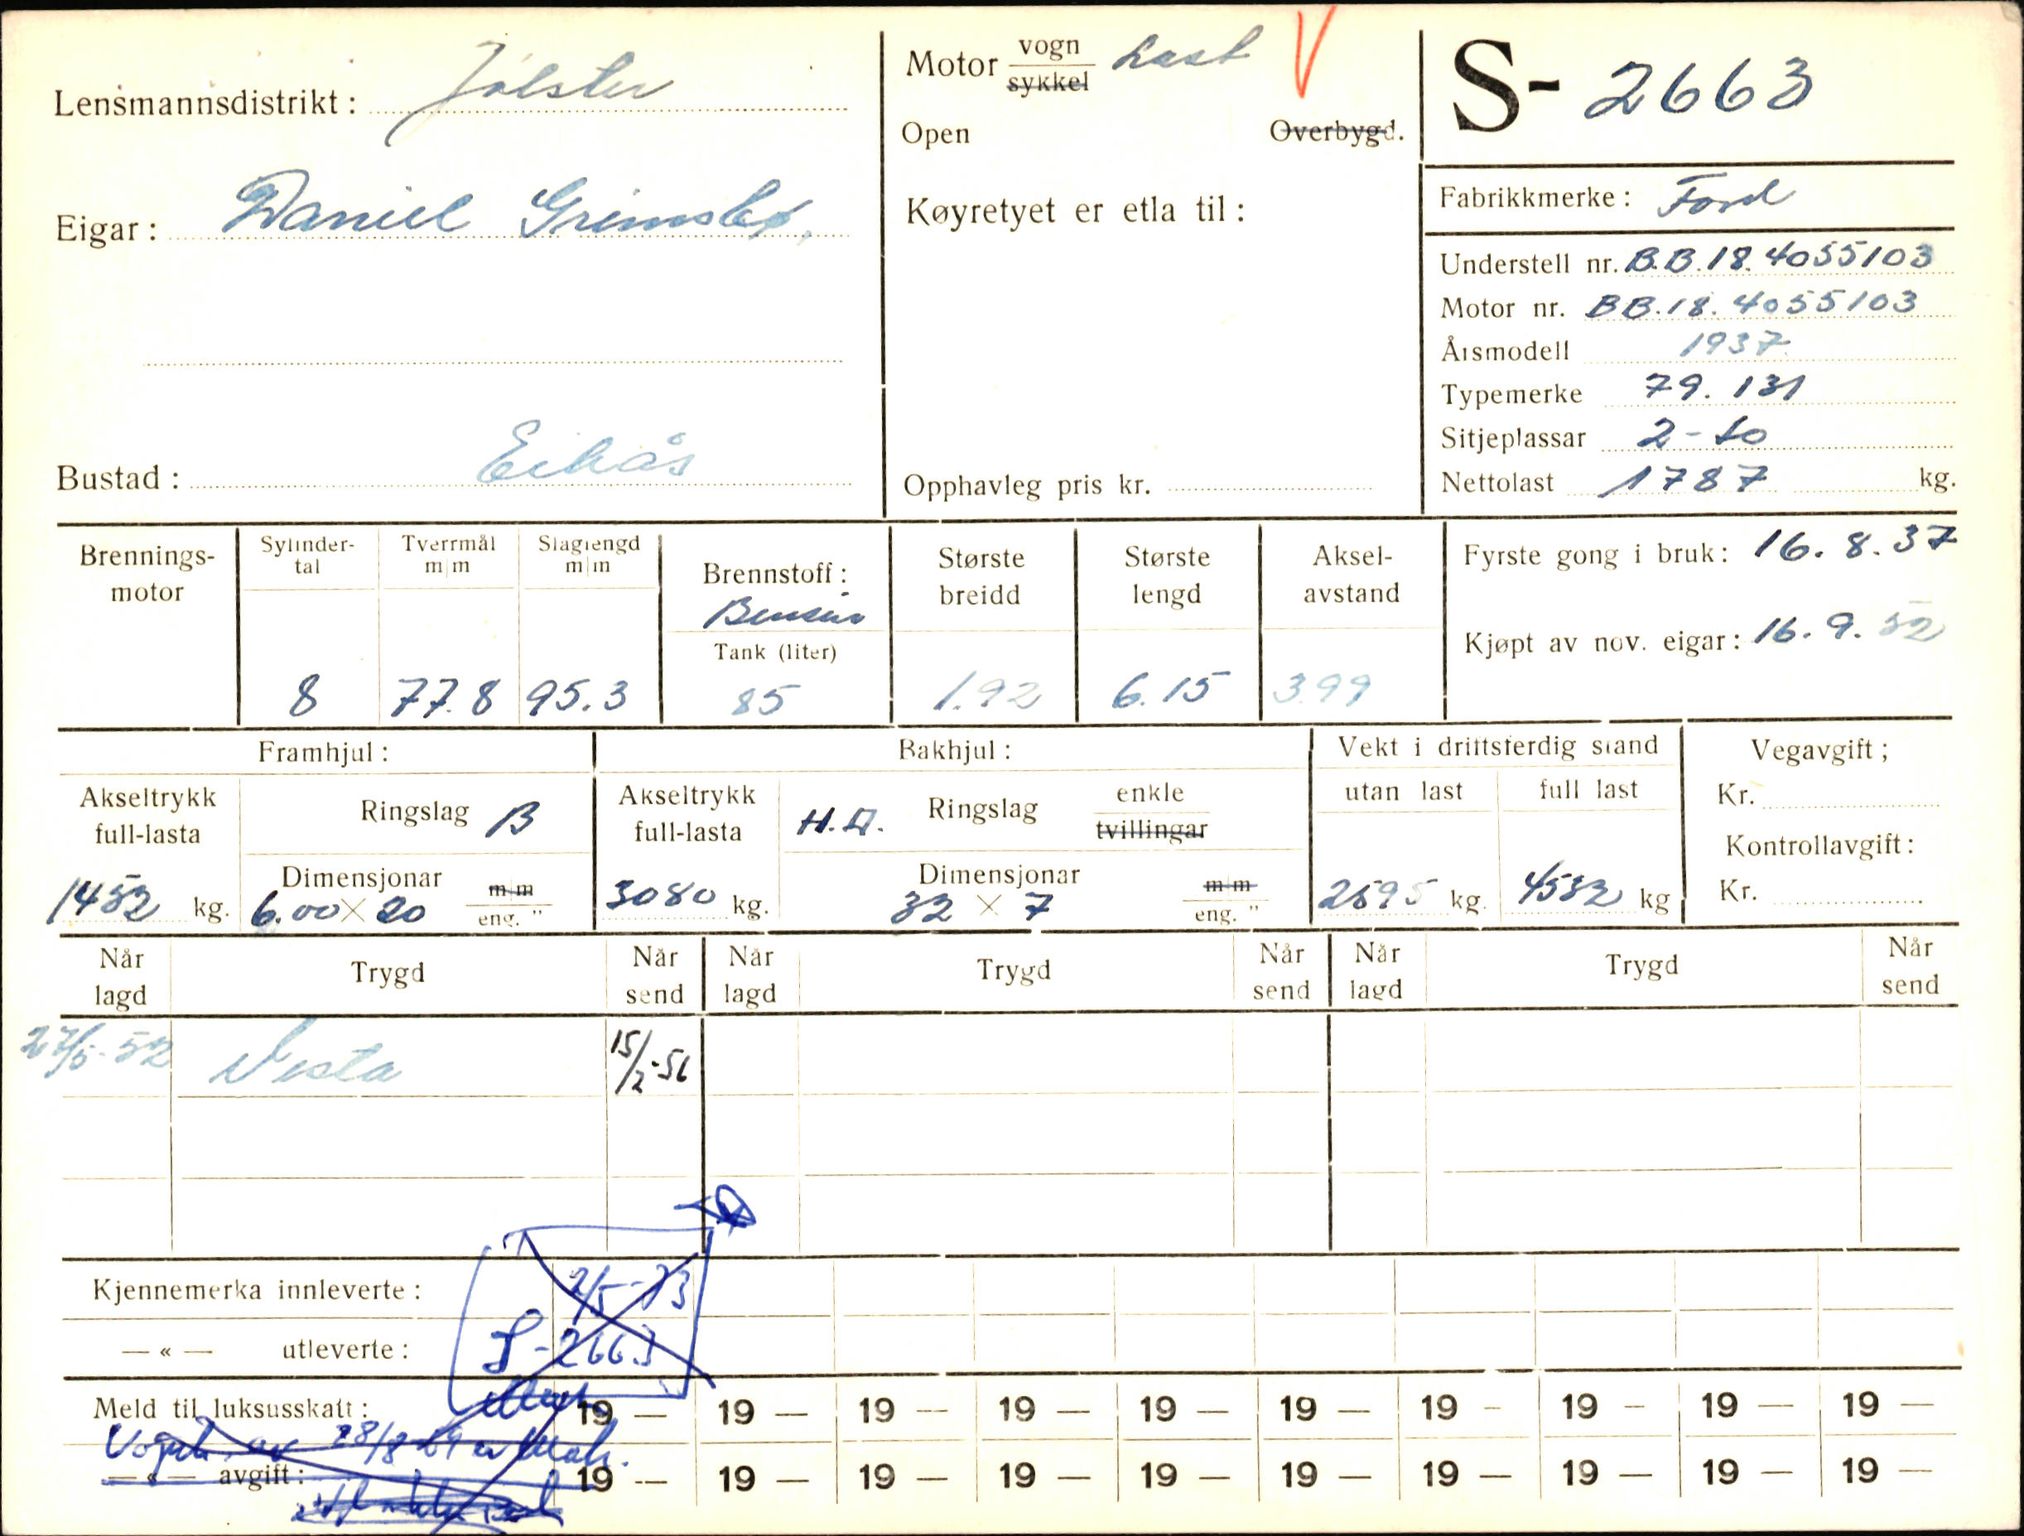 Lensmannsdistrikt: Jølster
Eigar: Daniel Grimsbø,
Bustad: Eikås
Motor vogn Last
sykkel
Open Overbygd.
Køyretyet er etla til:
Opphavleg pris kr.
S- 2663
Fabrikkmerke: Ford
Understell nr. B.B.18.4055103
Motor nr. BB.18.4055103
Årsmodell 1937
Typemerke 79. 131
Sitjeplassar 2 - to
Nettolast 1787 kg.
Brennings-
motor
Sylinder-
tal
8
Tverrmål
m|m
77.8
Slaglengd
m|m
95.3
Brennstoff:
Bensin
Tank (liter)
85
Største
breidd
1.92
Største
lengd
6.15
Aksel-
avstand
3.99
Fyrste gong i bruk: 16. 8. 37
Kjøpt av nov. eigar: 16. 9. 52
Framhjul:
Akseltrykk
full-lasta
1452 kg.
Ringslag B
Dimensjonar m m
6.00 × 20 eng. "
Bakhjul:
Akseltrykk
full-lasta
3080 kg.
H.D. Ringslag enkle
tvillingar
Dimensjonar m m
32 × 7 eng. "
Vekt i driftsferdig stand
utan last full last
2595 kg. 4532 kg
Vegavgift;
Kr.
Kontrollavgift:
Kr.
Når
lagd
Trygd
Når
send
Når
lagd
Trygd
Når
send
Når
lagd
Trygd
Når
send
27/5-52 Vesta 15/2-56
Kjennemerka innleverte: 2/5-73
— « — utleverte: S-2663
Meld til luksusskatt: 19 — 19 — 19 — 19 — 19 — 19 — 19 - 19 - 19 — 19 —
28/8
— « — avgift: 19 — 19 — 19 — 19 — 19 — 19 — 19 — 19 — 19 — 19 —